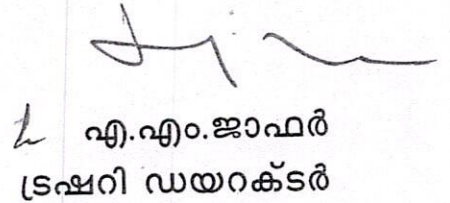 എ.എം.ജാഫർ
ട്രഷറി ഡയറക്ടർ